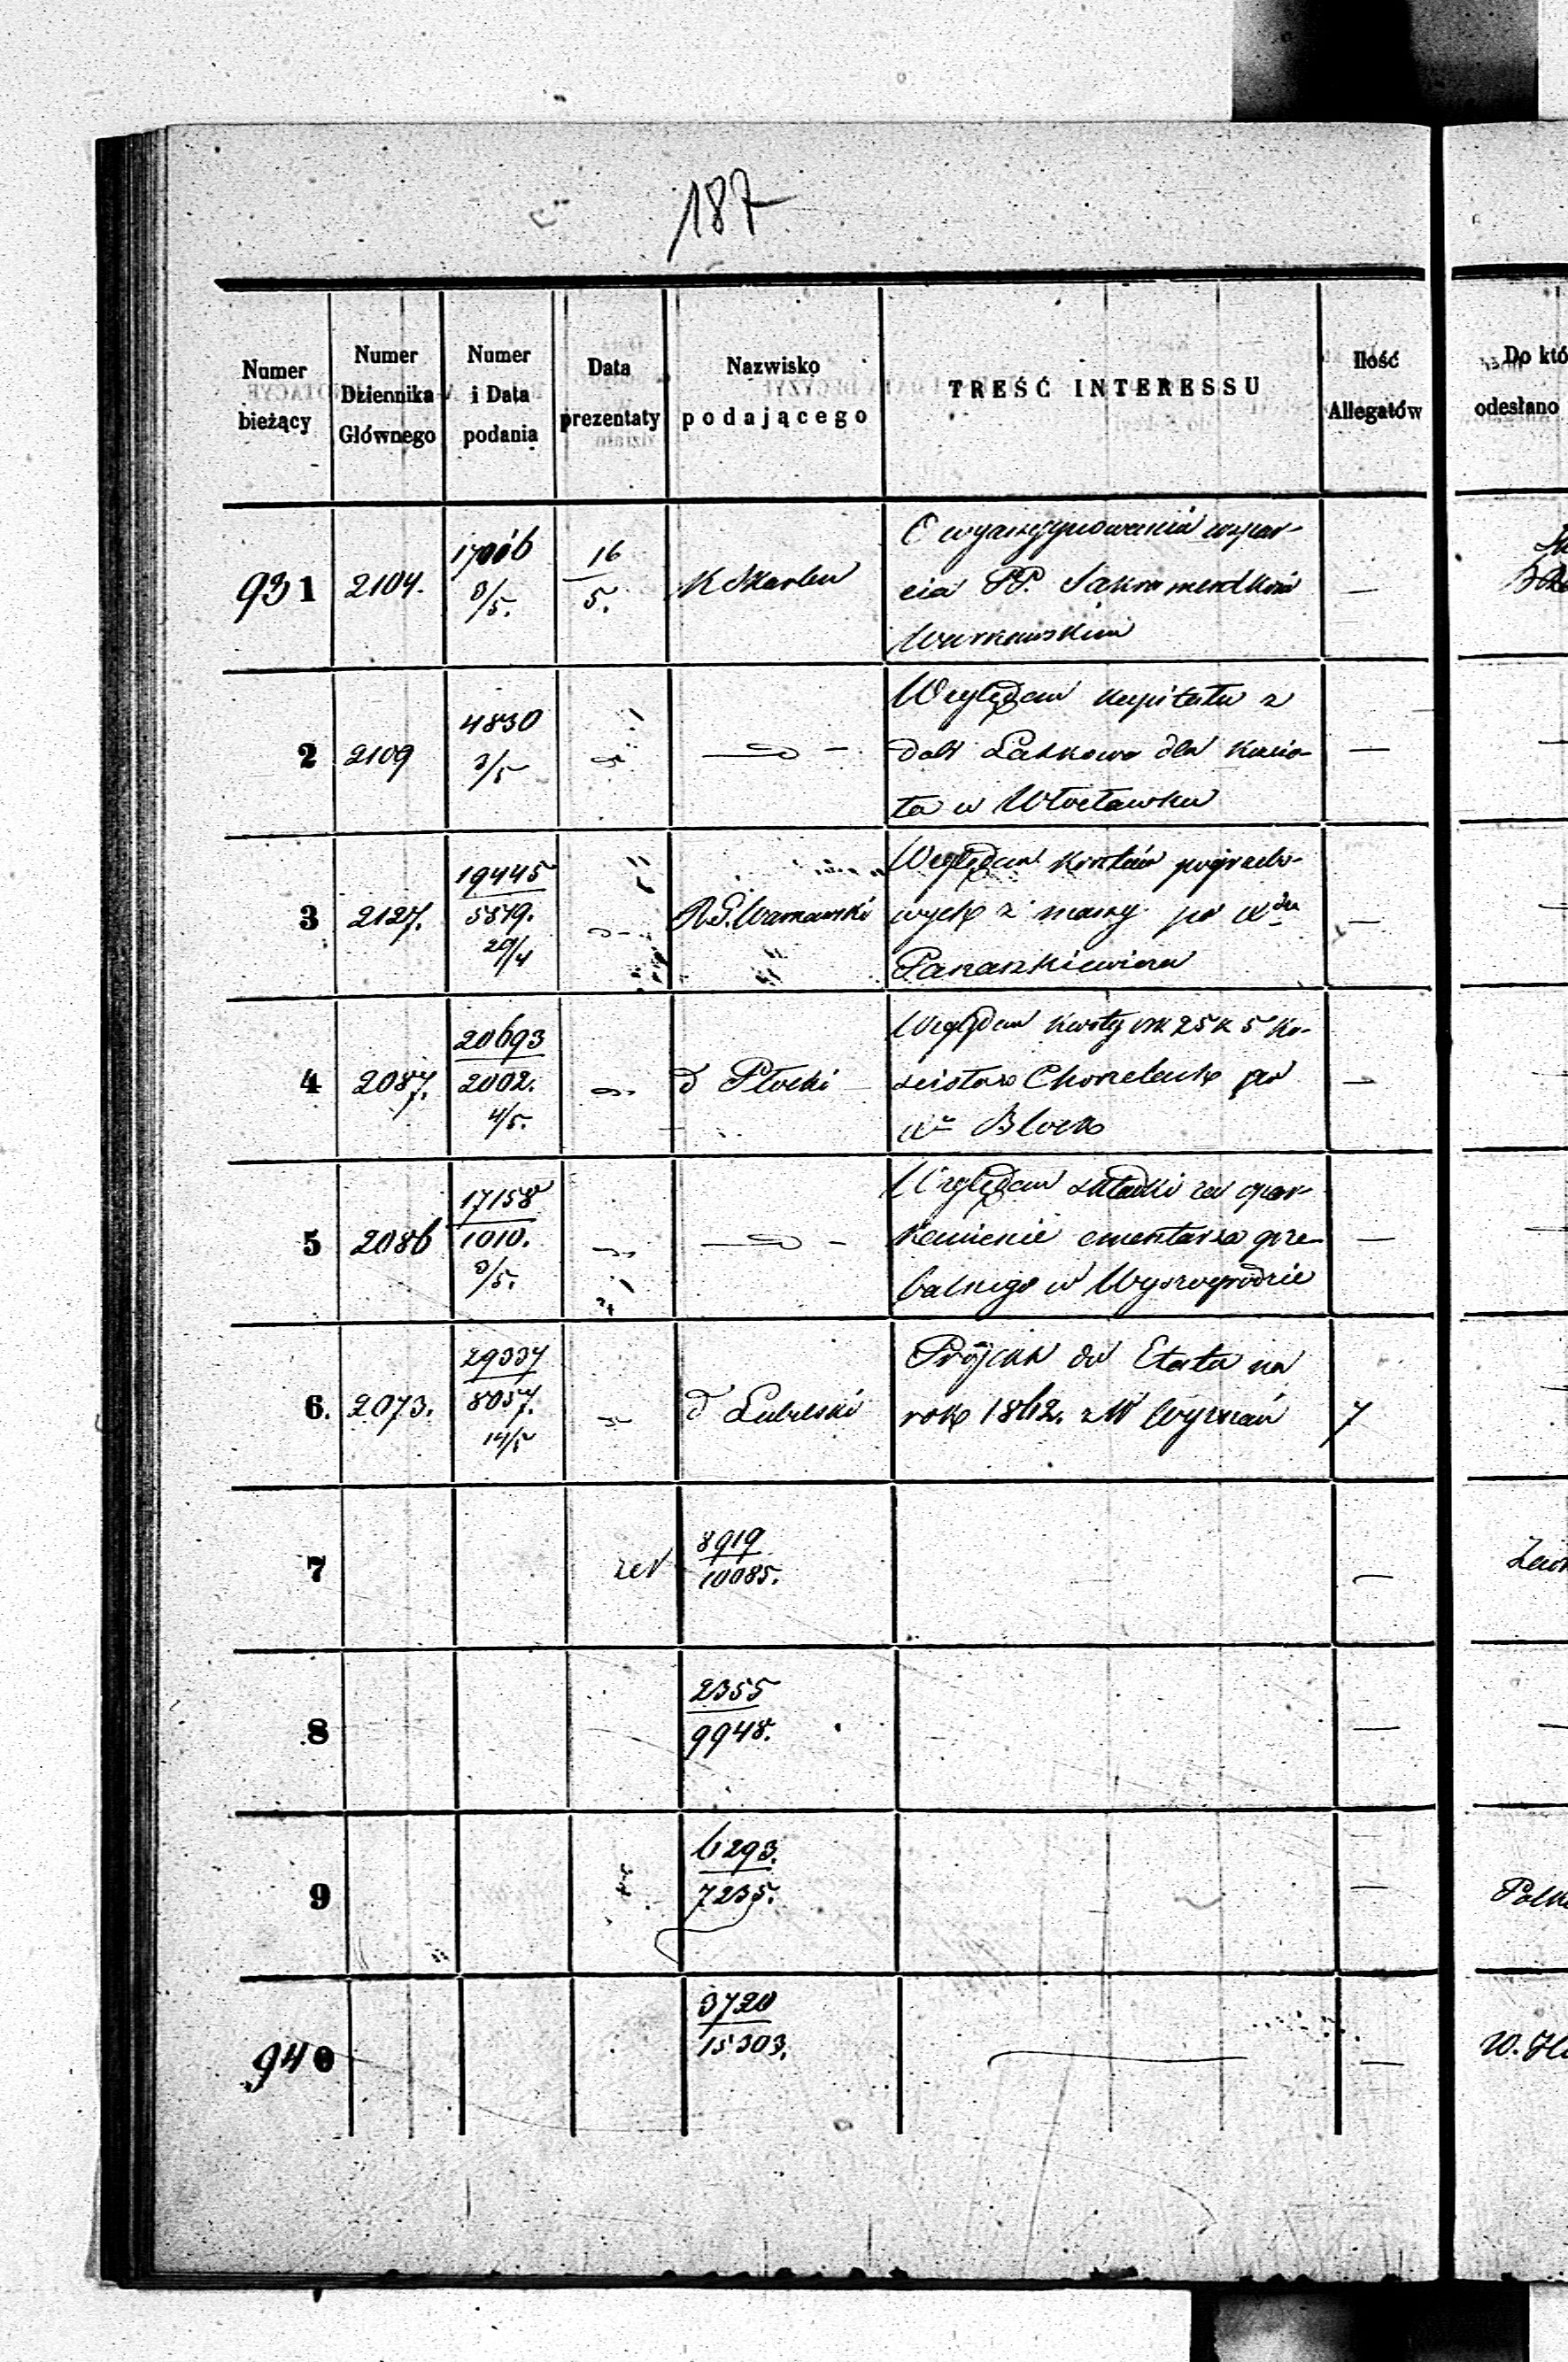 187
Numer bieżący
Numer Dziennika Głównego
Numer i Data podania
Data prezentaty
Nazwisko podającego
TREŚĆ INTERESSU
Ilość Allegatów
Do któ
odesłano
931 2104. 17006 3/5. 16/5. K Skarbu
O wyassygnowanie wspar-
cia PP. Sakramentkom
Warszawskim —
2 2109 4830 3/5
Względem kapitału z
dóbr Laskowo dla kościo-
ła w Włocławku —
3 2127. 19445 / 5879. 29/4 R. G. Warszawski
Względem kosztów pogrzebo-
wych z massy po
Paraszkiewiczu —
4 2087. 20693 / 2002. 4/5. d Płocki
Względem kwoty 25 k 5 Ko-
ściołowi Chorzelach po
Xu Block —
5 2086 17158 / 1010. 3/5.
Względem składki na opar-
kanienie cmentarza grze-
balnego w Wyszogrodzie —
6. 2073. 29337 / 8057. 14/5 d Lubelski
Projekt do Etatu na
rok 1862. z W Wyznań 7
7 8919 / 10085. —
8 2355 / 9948. —
9 6293. / 7235. —
940 3720 / 15303. —